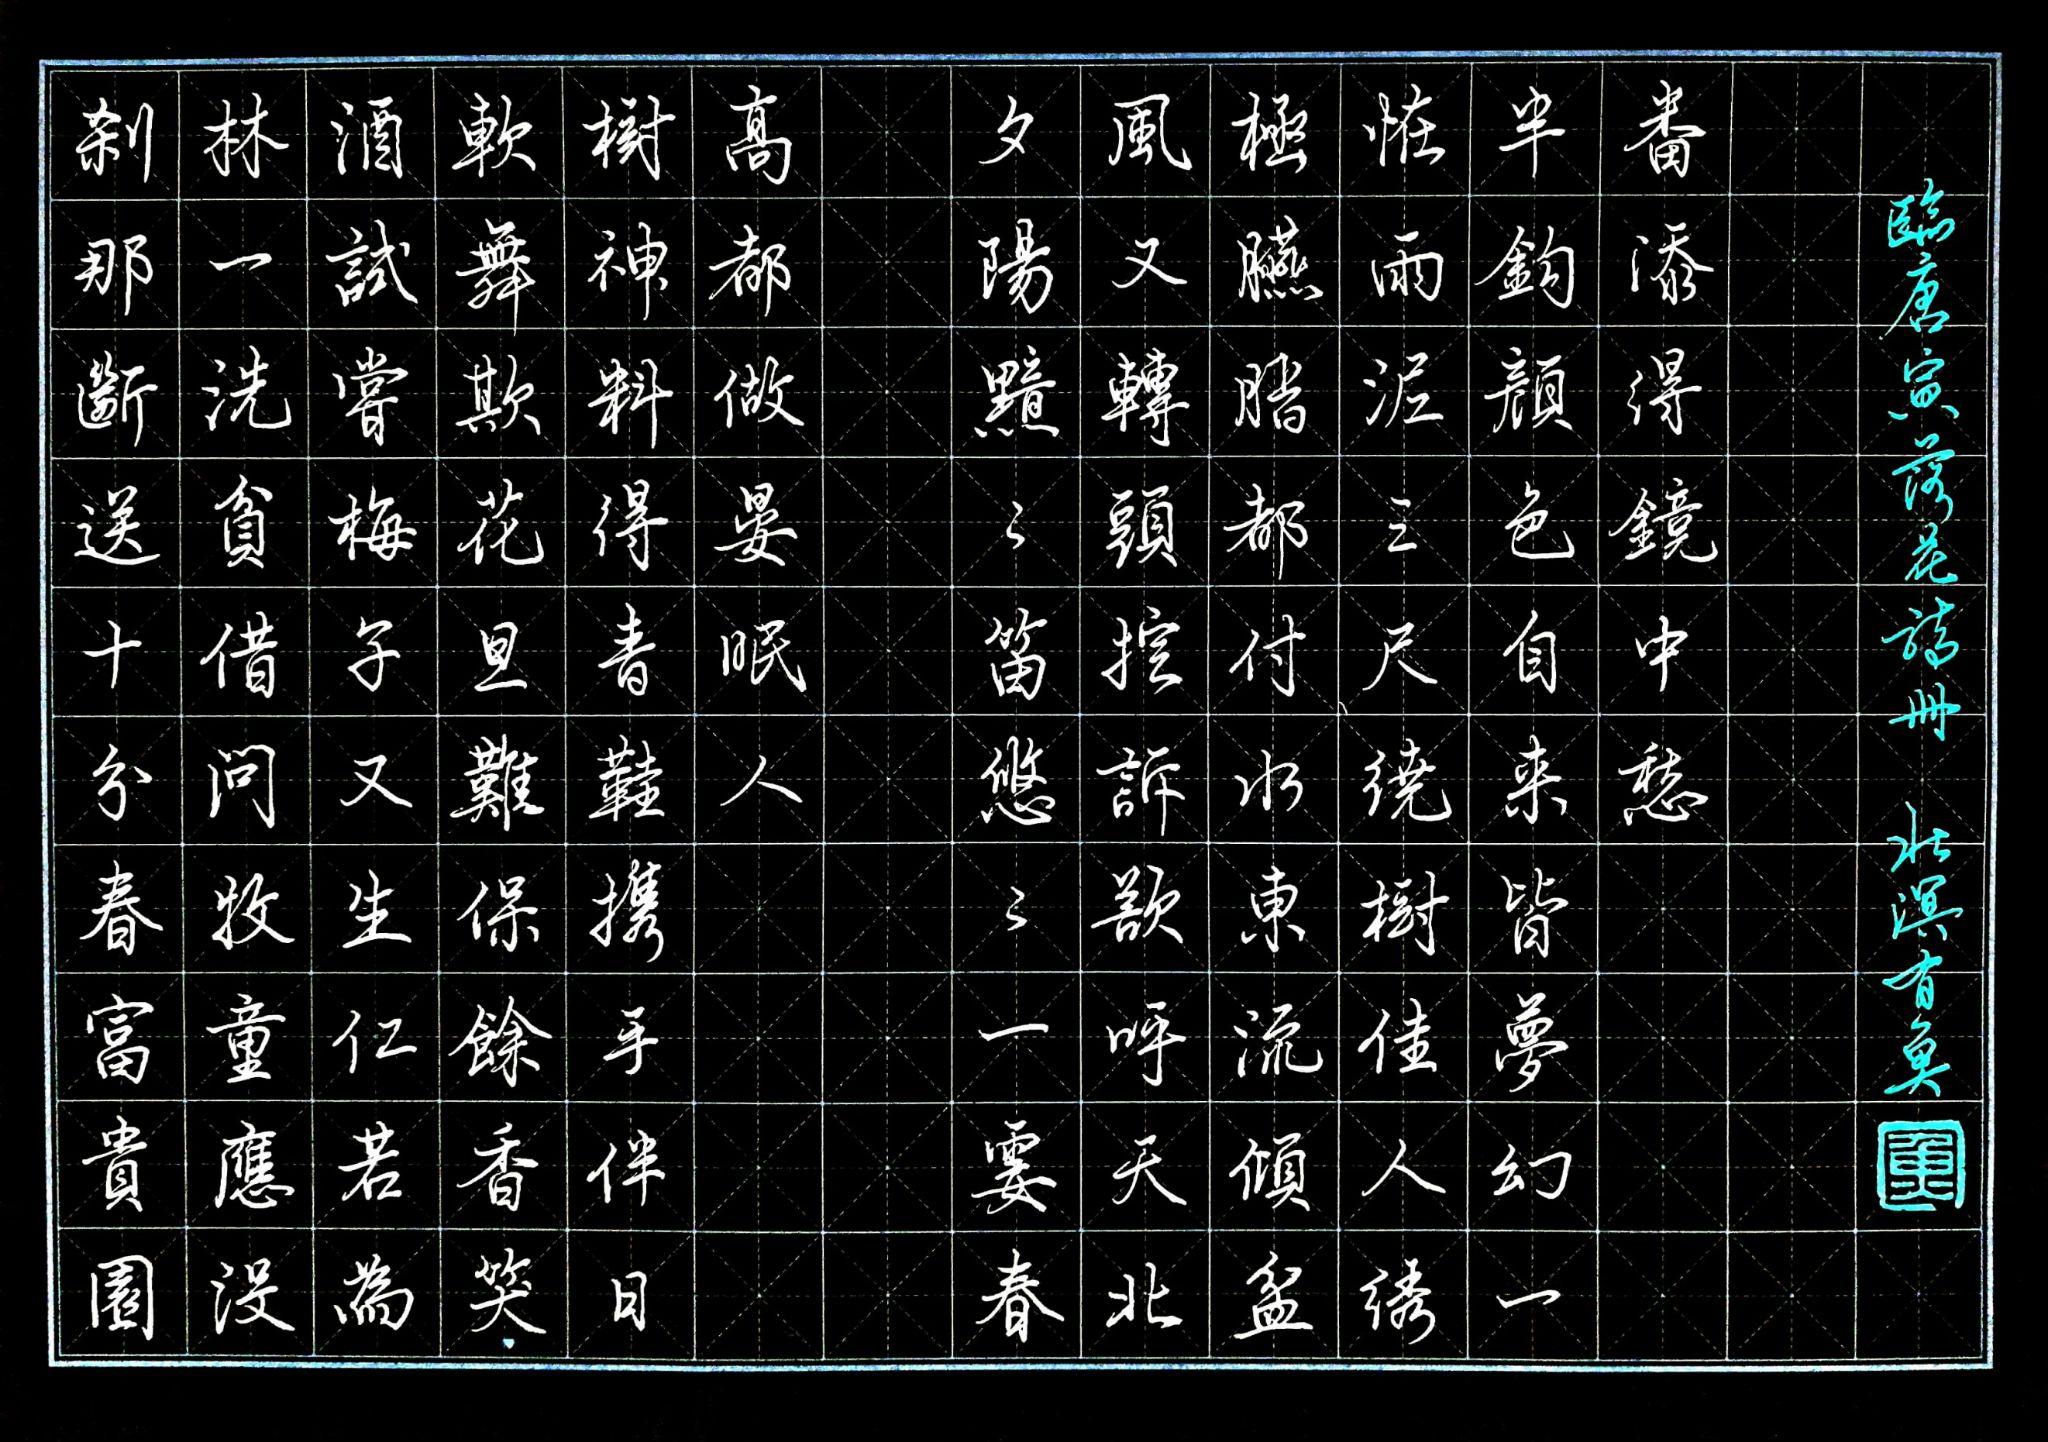 刹那斷送十分春富貴園
林一洗貧借問牧童應没
酒試嘗梅子又生仁若為
軟舞欺花旦難保餘香笑
樹神料得青鞋携手伴日
高都做晏眠人
夕陽黯〻笛悠〻一霎春
風又轉頭控訴欲呼天北
極臙脂都付水東流傾盆
恠雨泥三尺繞樹佳人綉
半鈎顔色自来皆夢幻一
番添得鏡中愁
臨唐寅落花詩冊 北溟有魚